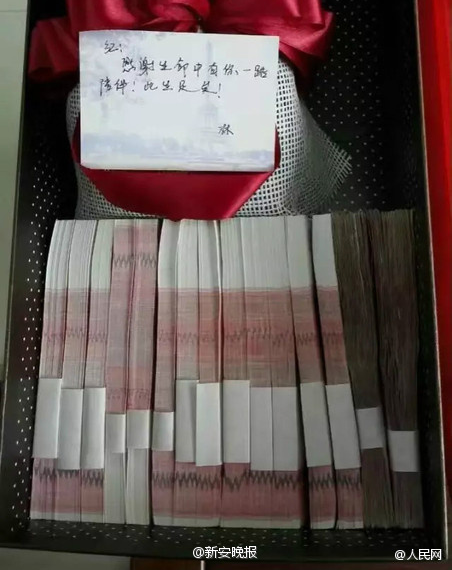 纪：
感谢生命中有你、一路
陪伴！此生足矣！
林
@新安晚报
@人民网